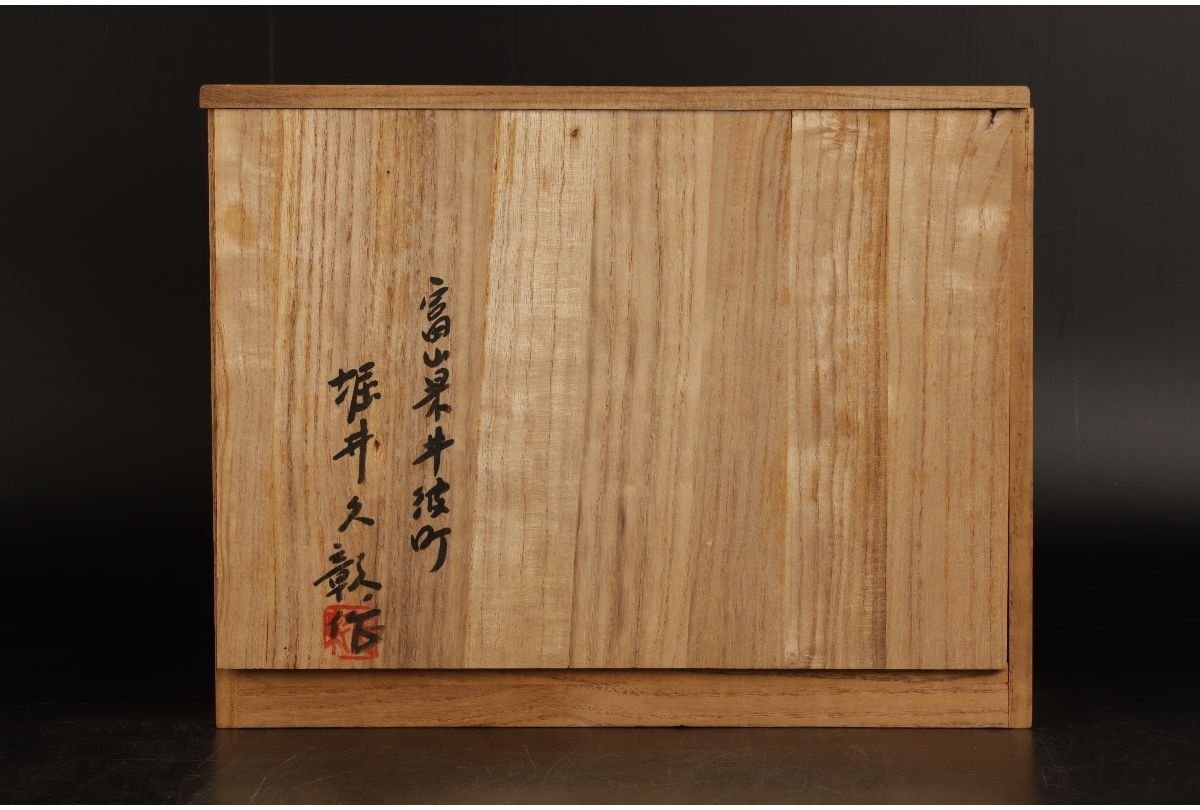 富山県井波町
堀井久彰作